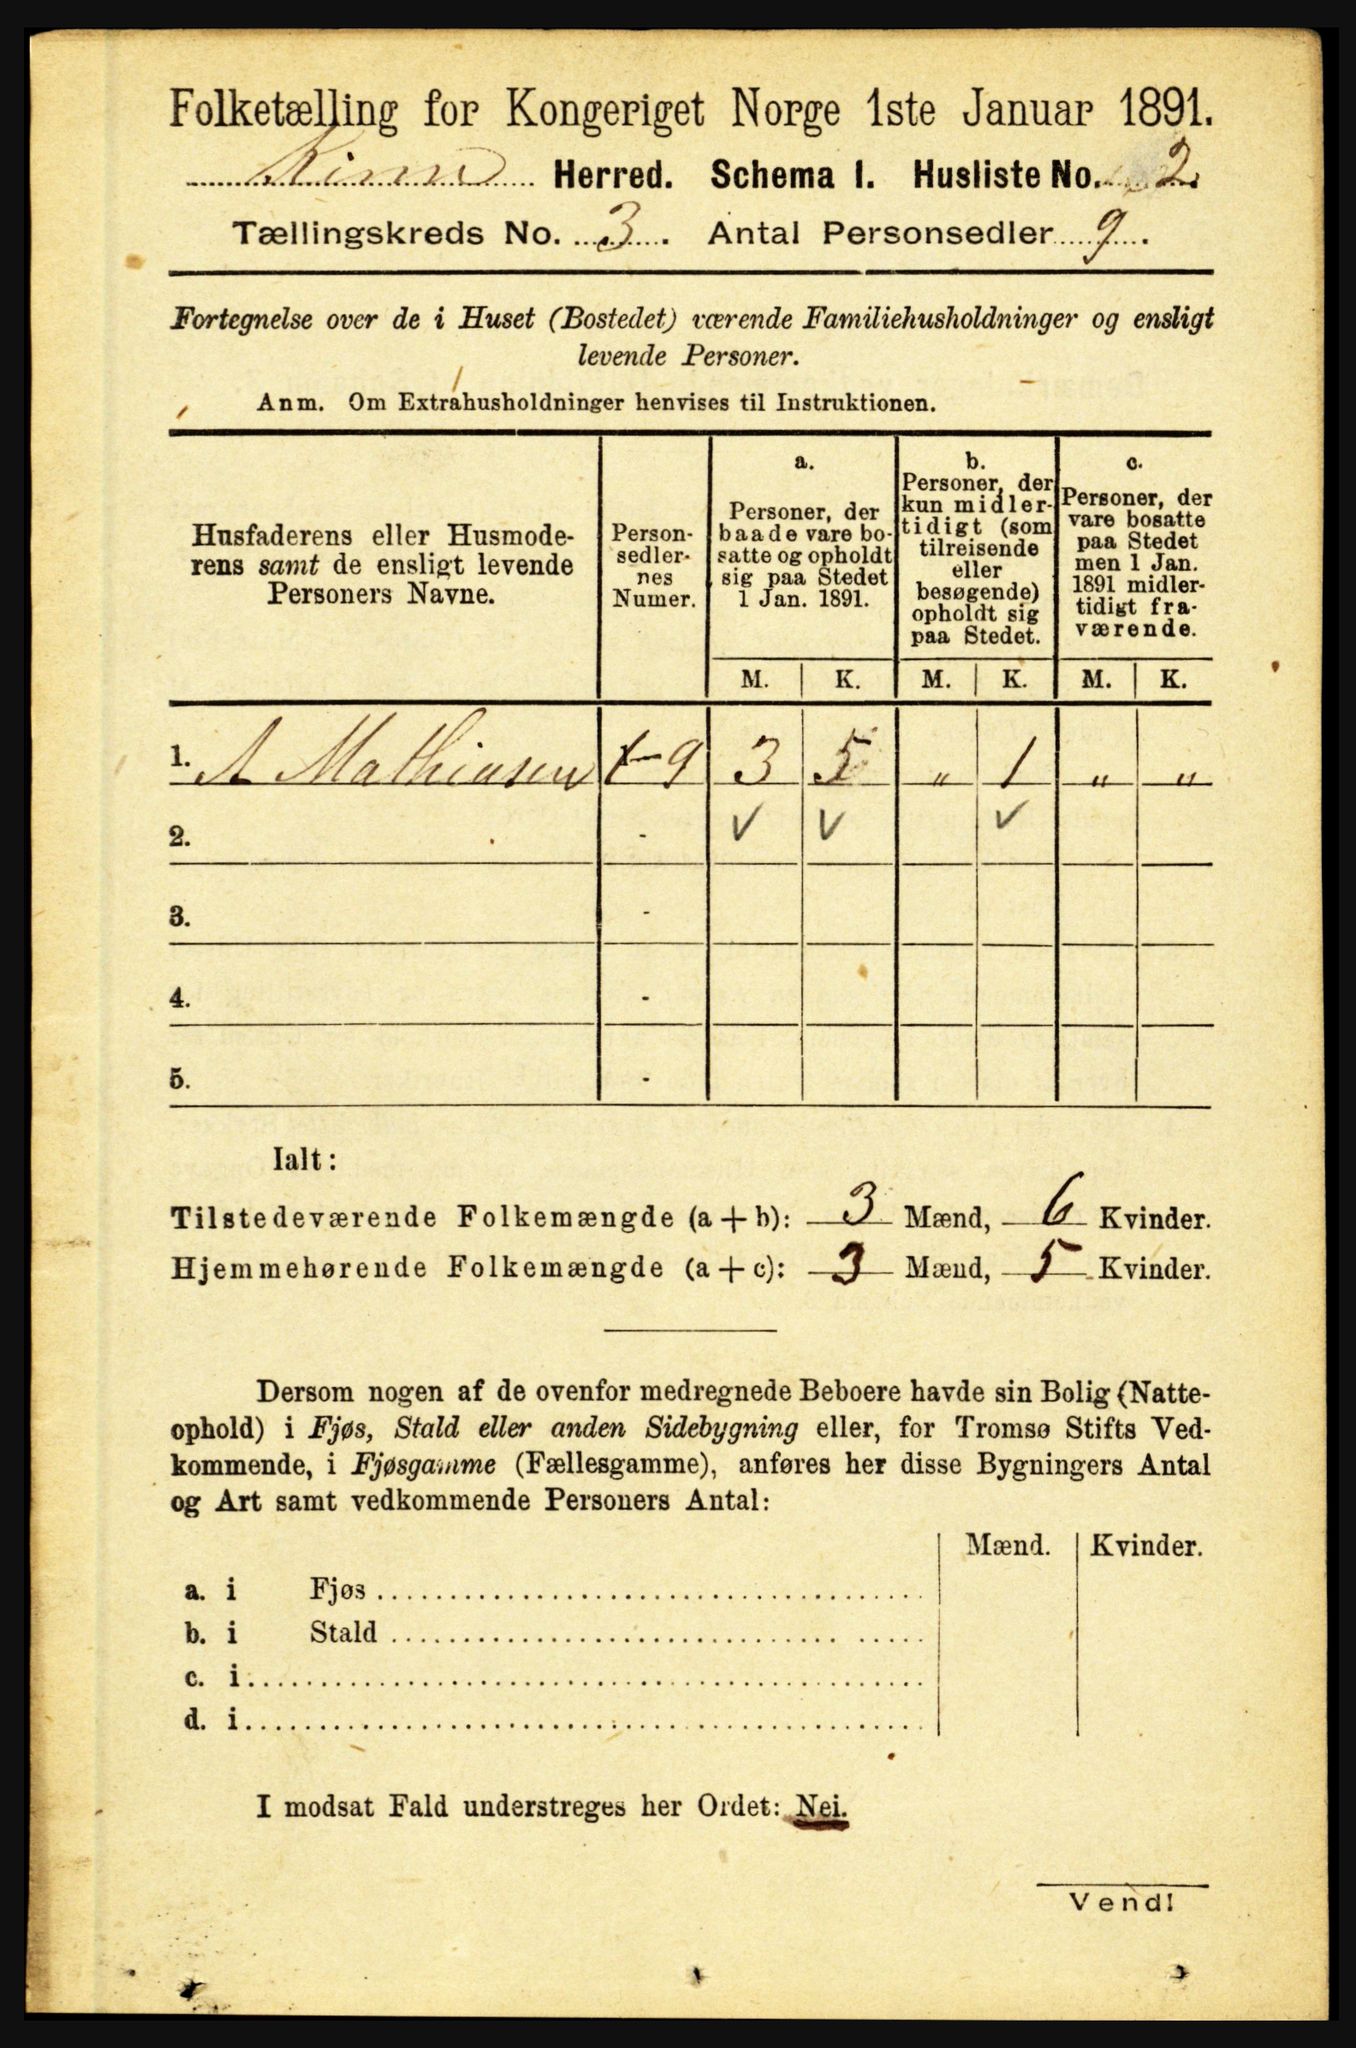 Folketælling for Kongeriget Norge 1ste Januar 1891.
Kinn Herred. Schema I. Husliste No. 2
Tællingskreds No. 3. Antal Personsedler 9.
Fortegnelse over de i Huset (Bostedet) værende Familiehusholdninger og ensligt
levende Personer.
Anm. Om Extrahusholdninger henvises til Instruktionen.
Husfaderens eller Husmode-
rens samt de ensligt levende
Personers Navne.
Person-
sedler-
nes
Numer.
a.
Personer, der
baade vare bo-
satte og opholdt
sig paa Stedet
1 Jan. 1891.
b.
Personer, der
kun midler-
tidigt (som
tilreisende
eller
besøgende)
opholdt sig
paa Stedet.
c.
Personer, der
vare bosatte
paa Stedet
men 1 Jan.
1891 midler-
tidigt fra-
værende.
M. K. M. K. M. K.
1. A Mathiasen 1-9 3 5 " 1 " "
2. - ✓ ✓ ✓
3. -
4. -
5. -
Ialt:
Tilstedeværende Folkemængde (a + b): 3 Mænd, 6 Kvinder.
Hjemmehørende Folkemængde (a + c): 3 Mænd, 5 Kvinder.
Dersom nogen af de ovenfor medregnede Beboere havde sin Bolig (Natte-
ophold) i Fjøs, Stald eller anden Sidebygning eller, for Tromsø Stifts Ved-
kommende, i Fjøsgamme (Fællesgamme), anføres her disse Bygningers Antal
og Art samt vedkommende Personers Antal:
Mænd. Kvinder.
a. i Fjøs
b. i Stald
c. i
d. i
I modsat Fald understreges her Ordet: Nei.
Vend!